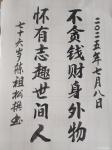 二〇二五年七月八日
不贪钱财身外物
怀有志趣世间人
七十六岁陈祖松撰书